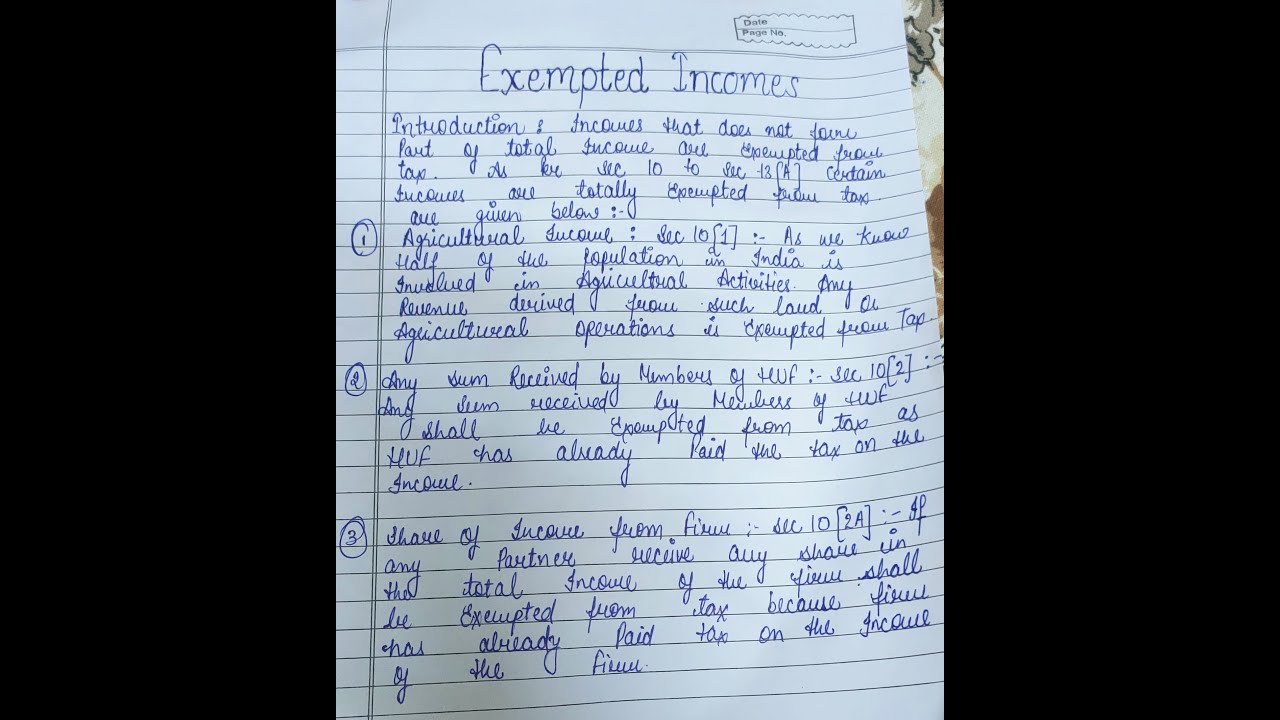 Date
Page No.
Exempted Incomes
Introduction : Incomes that does not form
Part of total Income are Exempted from
tax. As per sec 10 to sec 13[A] certain
Incomes are totally Exempted from tax
are given below :-
① Agricultural Income : Sec 10[1] :- As we know
Half of the Population in India is
Involved in Agricultural Activities. Any
Revenue derived from such land or
Agricultural operations is Exempted from Tax.
② Any sum Received by Members of HUF :- sec 10[2] :-
Any sum received by Members of HUF
shall be Exempted from tax as
HUF has already Paid the tax on the
Income.
③ Share of Income from firm :- sec 10[2A] :- If
any Partner receive any share in
the total Income of the firm shall
be Exempted from tax because firm
has already Paid tax on the Income
of the firm.